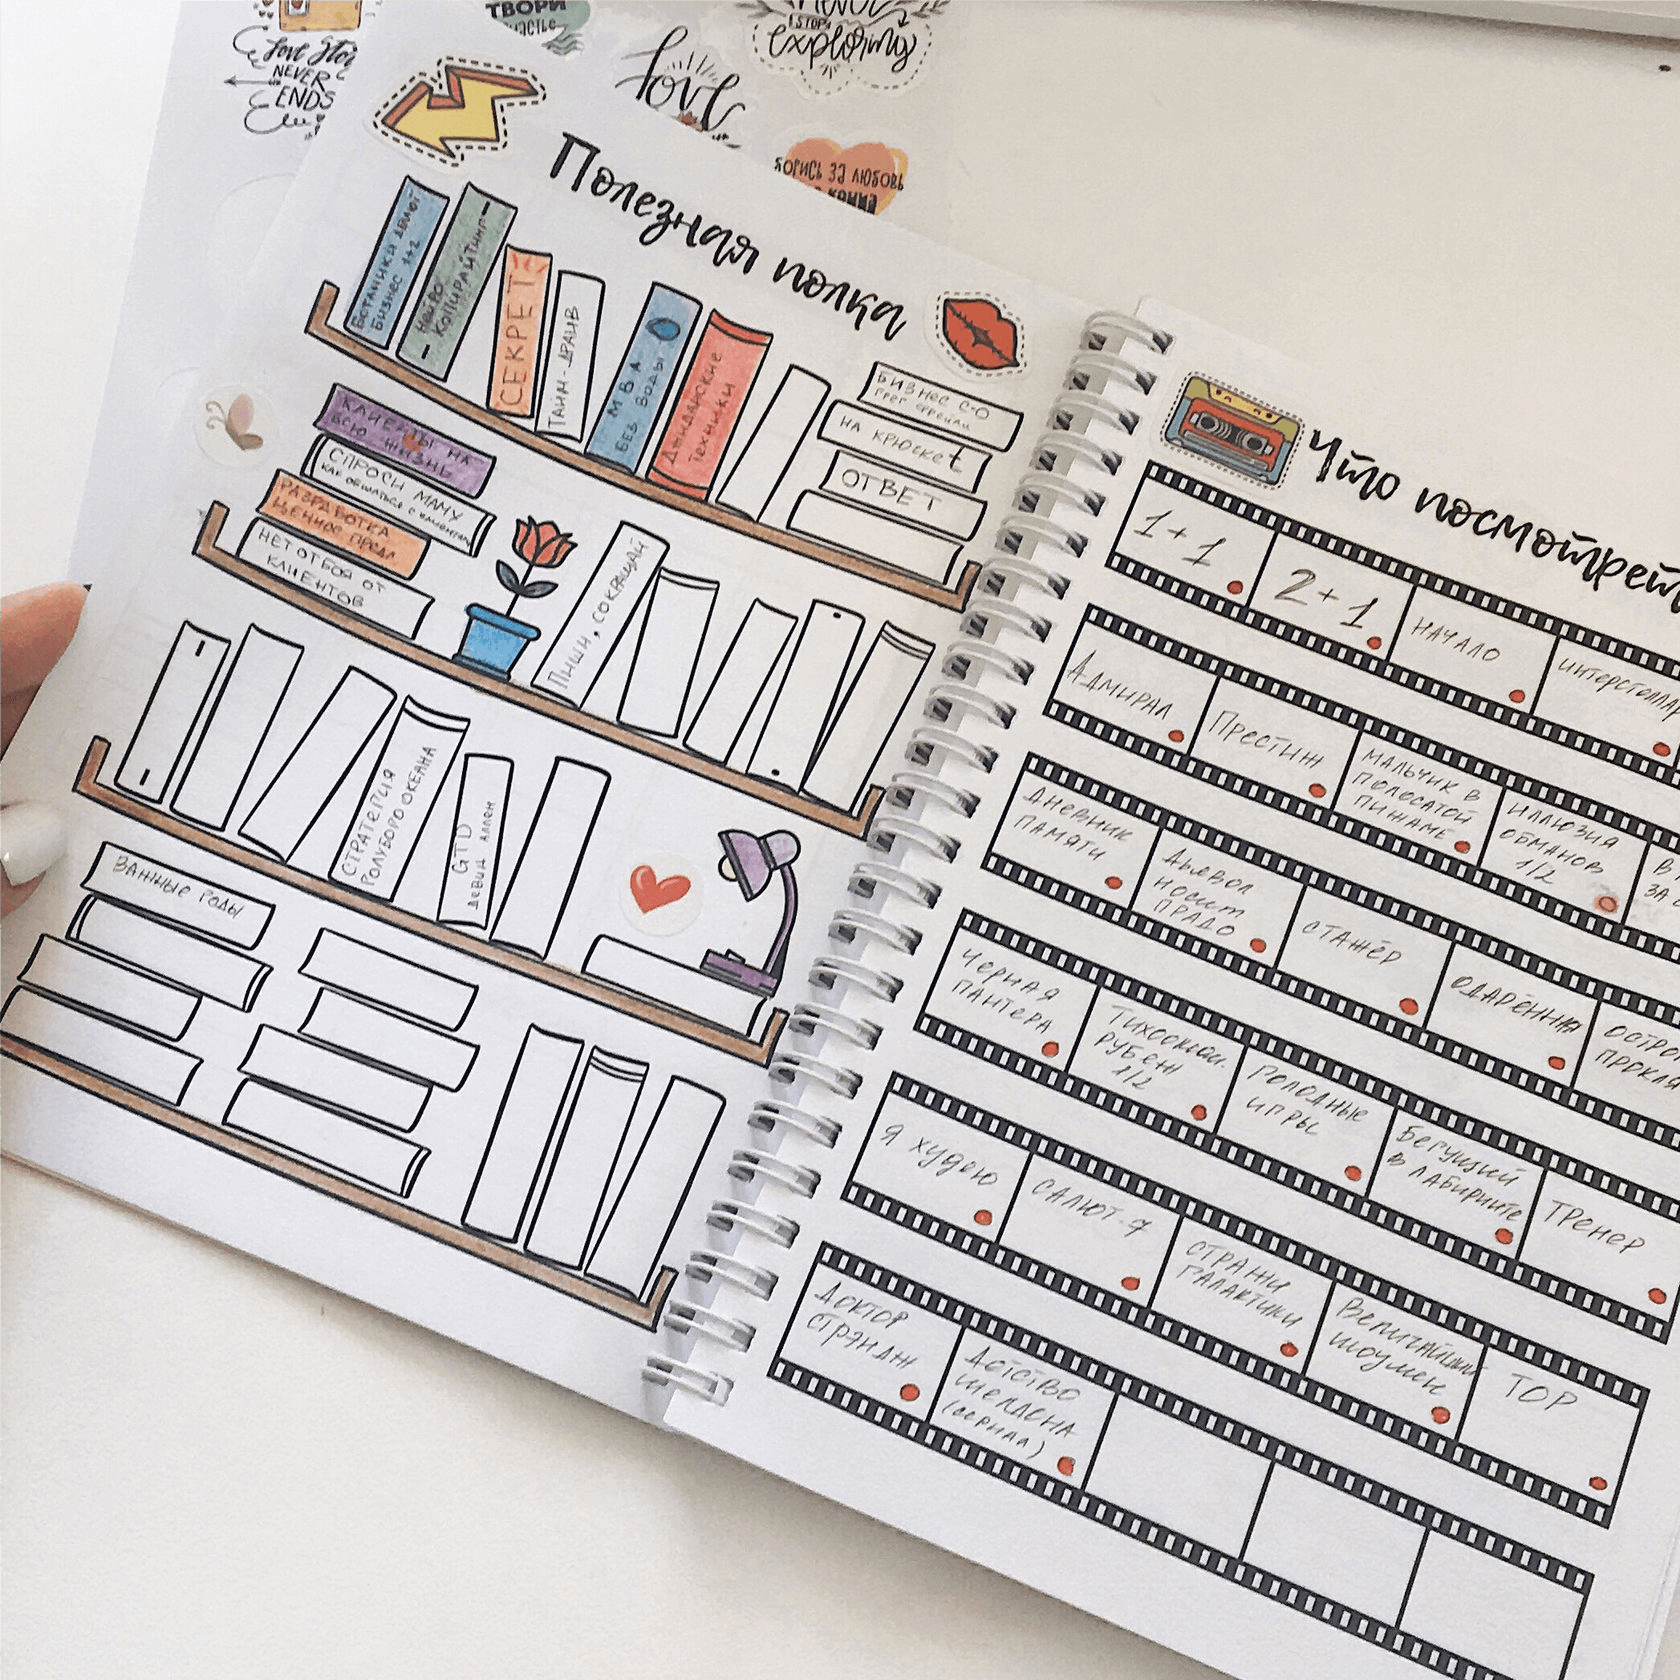 Love Story
NEVER
ENDS
ТВОРИ
love
STOP
exploring
БОРИСЬ ЗА ЛЮБОВЬ
Полезная полка
БОТАНИКИ ДЕЛАЮТ
БИЗНЕС 1+2
НЕЙРО
КОПИРАЙТИНГ
СЕКРЕТ
ТАЙМ-ДРАЙВ
МВА
БЕЗ ВОДЫ
ДЖЕДАЙСКИЕ
ТЕХНИКИ
БИЗНЕС С О
НА КРЮЧКЕ
ОТВЕТ
КЛИЕНТЫ НА
ВСЮ ЖИЗНЬ
СПРОСИ МАМУ
КАК ОБЩАТЬСЯ С КЛИЕНТАМИ
РАЗРАБОТКА
ЦЕННОС ПРЕДЛ
НЕТ ОТБОЯ ОТ
КЛИЕНТОВ
ПИШИ, СОКРАЩАЙ
СТРАТЕГИЯ
ГОЛУБОГО ОКЕАНА
GTD
ДЕВИД АЛЛЕН
ВАЖНЫЕ ГОДЫ
Что посмотреть
1+1
2+1
НАЧАЛО
ИНТЕРСТЕЛЛАР
АДМИРАЛ
ПРЕСТИЖ
МАЛЬЧИК В
ПОЛОСАТОЙ
ПИЖАМЕ
ИЛЛЮЗИЯ
ОБМАНОВ
1/2
ДНЕВНИК
ПАМЯТИ
ДЬЯВОЛ
НОСИТ
ПРАДО
СТАЖЁР
ОДАРЁННАЯ
ЧЕРНАЯ
ПАНТЕРА
ТИХООКЕАН.
РУБЕЖ
1/2
ГОЛОДНЫЕ
ИГРЫ
БЕГУЩИЙ
В ЛАБИРИНТЕ
ТРЕНЕР
Я ХУДЕЮ
САЛЮТ-7
СТРАЖИ
ГАЛАКТИКИ
ВЕЛИЧАЙШИЙ
ШОУМЕН
ТОР
ДОКТОР
СТРЭНДЖ
ДЕТСТВО
ШЕЛДОНА
(СЕРИАЛ)